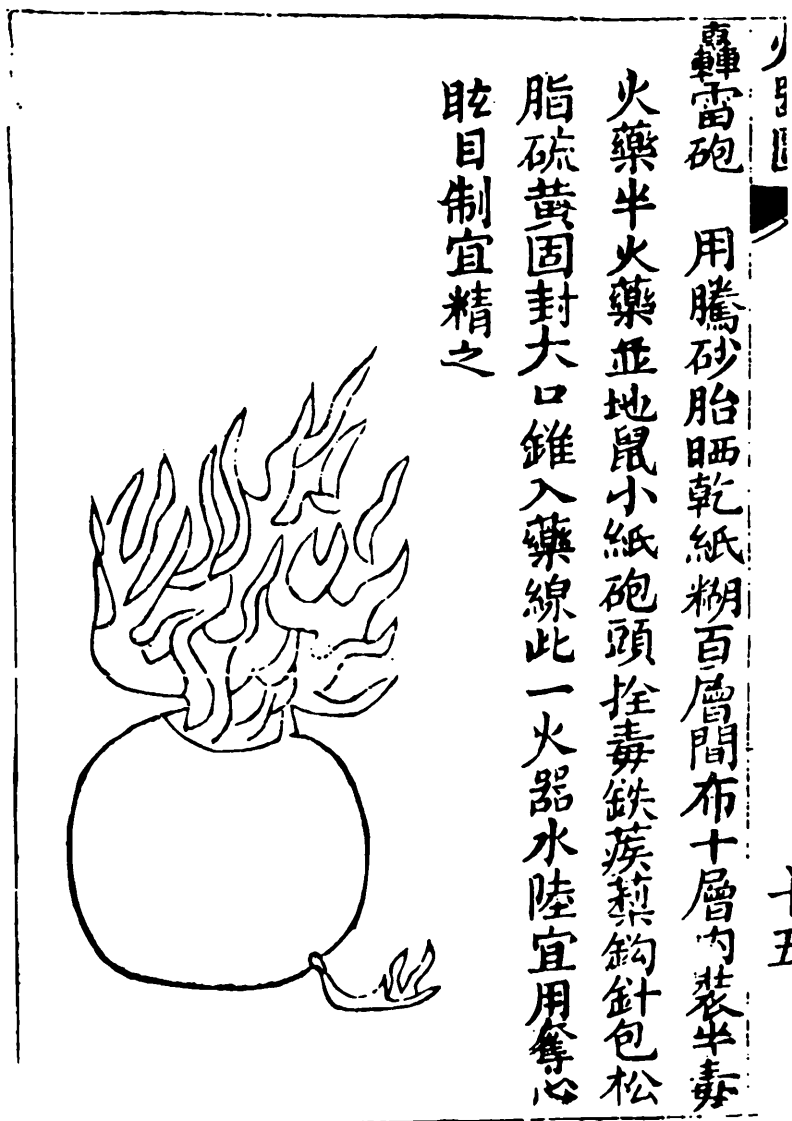 轟雷砲 用騰砂胎晒乾紙糊百層間布十層內裝半毒
火藥半火藥並地鼠小紙砲頭拴毒鉄蒺䔧鈎針包松
脂硫黄固封大口錐入藥線此一火器水陸宜用奪心
眩目制宜精之
十五